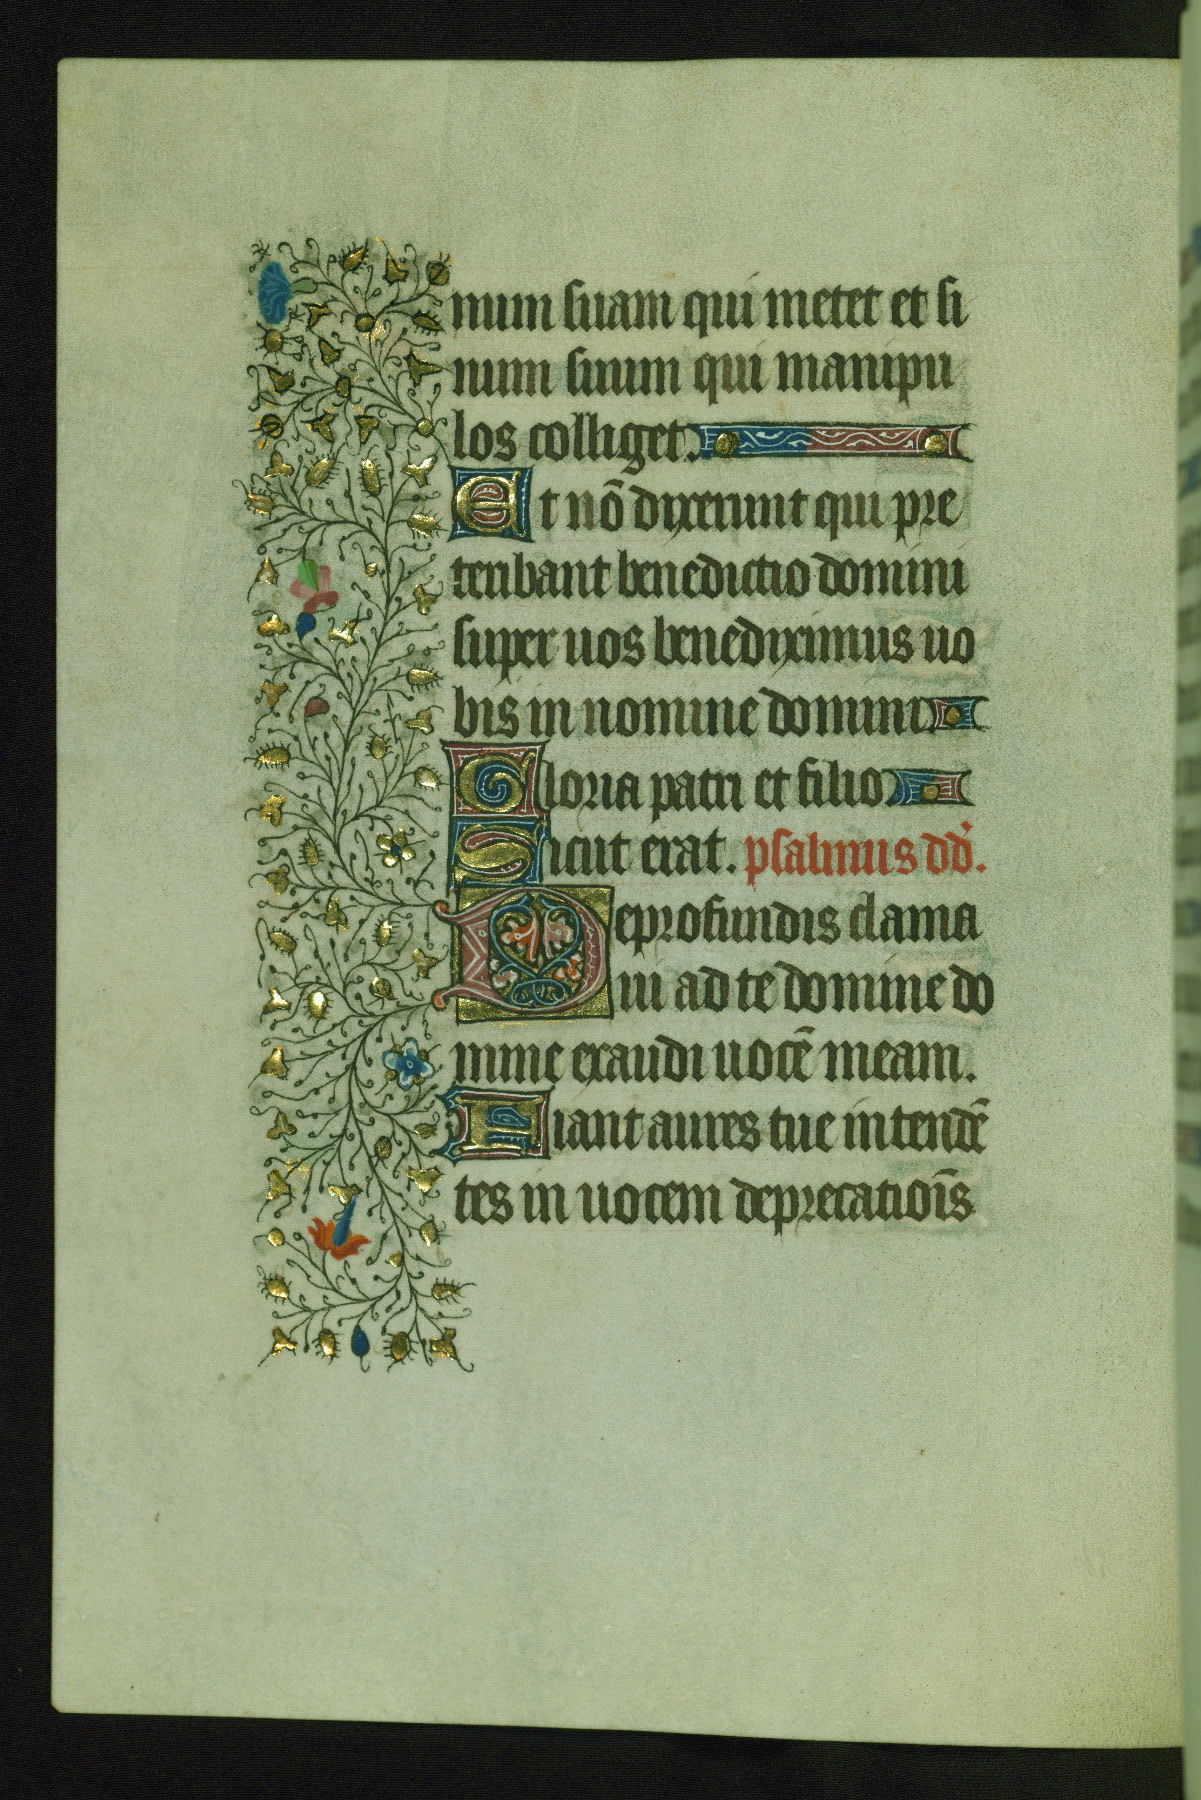 num suam qui metet et si
num sinum qui manipu
los colliget.
Et nõ dixerunt qui pre
teribant benedictio domini
super uos benediximus uo
bis in nomine domini
Gloria patri et filio
Sicut erat. psalmus dd̄.
De profundis clama
ui ad te domine do
mine exaudi uocẽ meam.
Fiant aures tue intendẽ
tes in uocem deprecatiõis